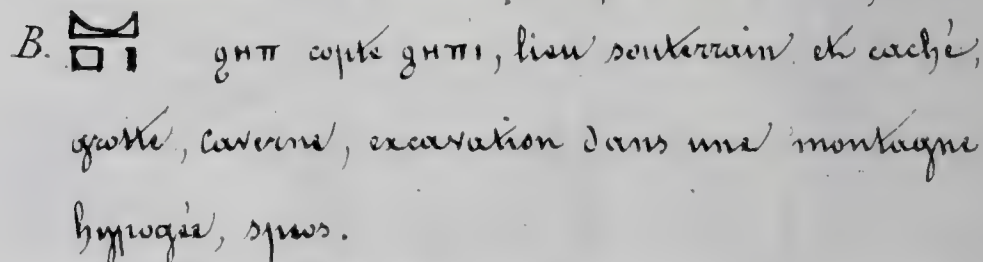 B. ϩⲏⲡ copte ϩⲏⲡⲓ, lieu souterrain et caché,
grotte, caverne, excavation dans une montagne
hypogée, spéos.